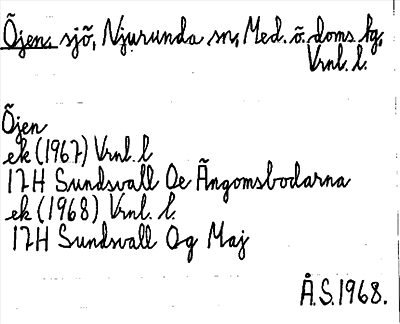 Öjen, sjö, Njurunda sn, Med. ö. doms. hg,
Vrnl. l.
Öjen
ek (1967) Vrnl. l
17H Sundsvall Oe Ängomsbodarna
ek (1968) Vrnl. l.
17H Sundsvall Og Maj
Å.S.1968.